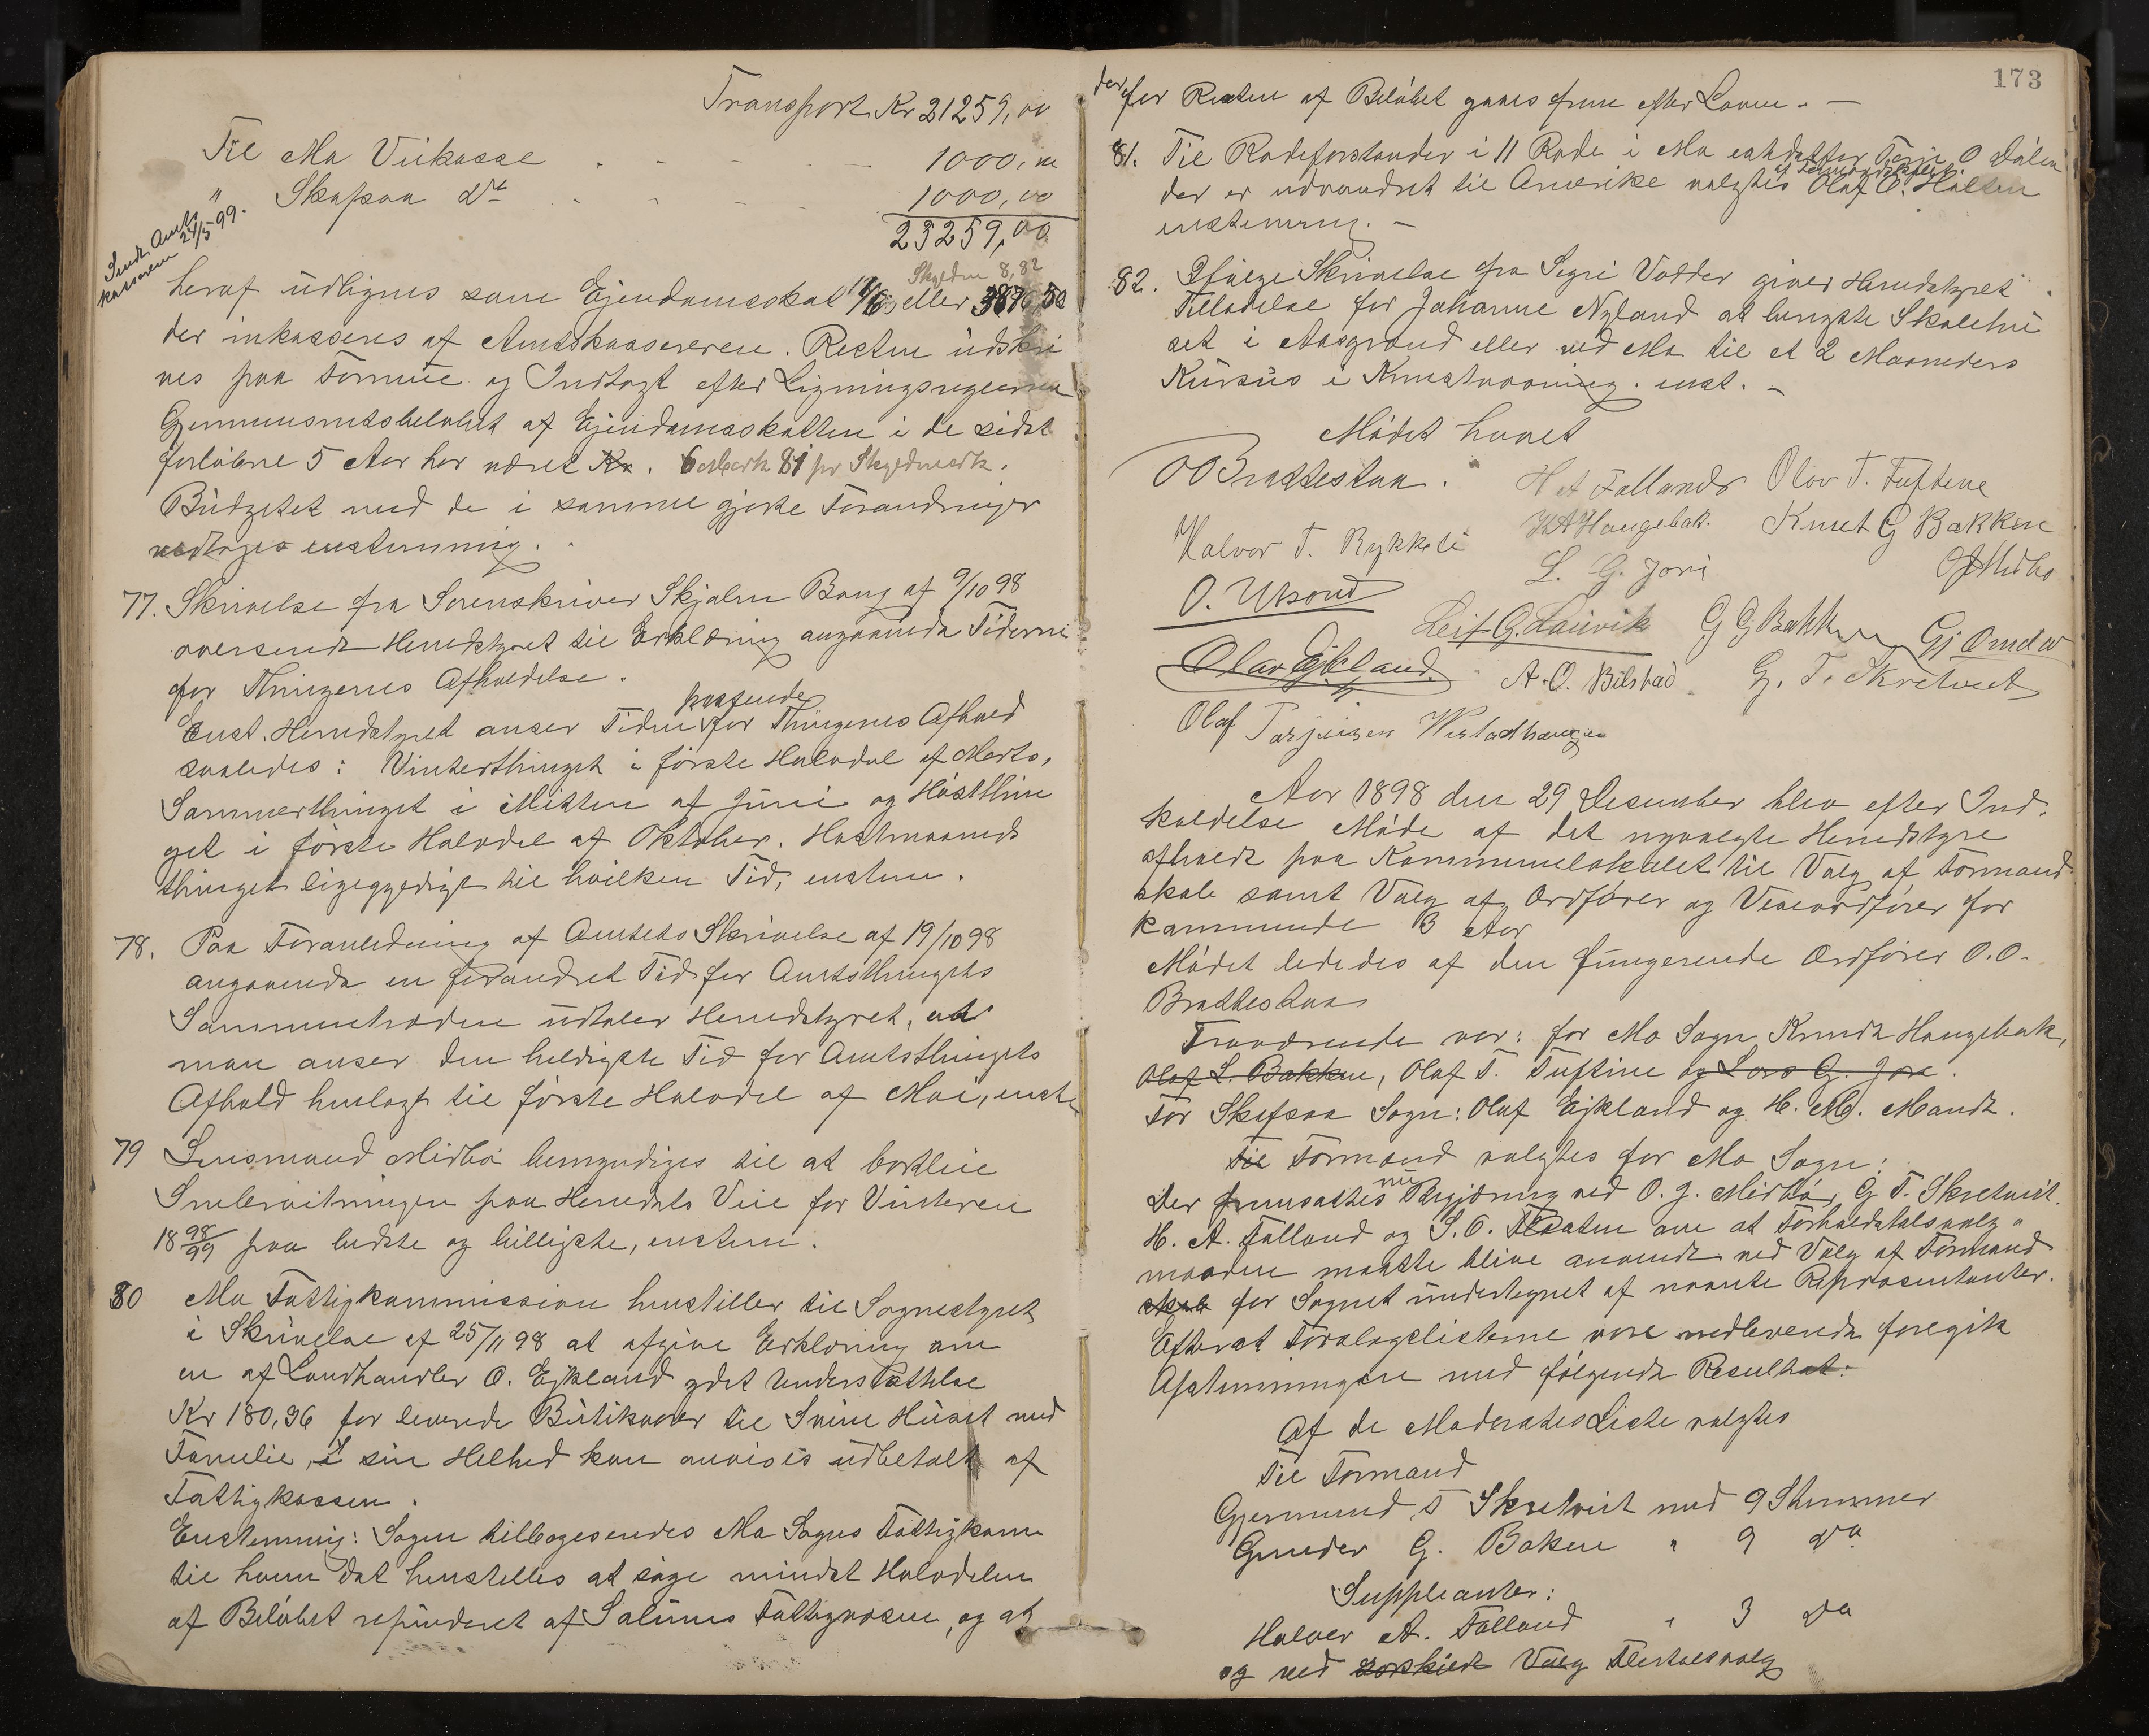 Transport Kr 21259,00
Til Mo Veikasse . - - - - 1000,00
" Skafsaa do . - - - 1000,00
23259,00
Sendt Amts
kasserern 24/5 99.
Skyldm 8,82
heraf udlignes som Ejendomsskat 1/6 eller 3876,50
der inkasseres af Amtskassereren. Resten udskri
ves paa Formue og Indtægt efter Ligningsreglerne
Gjennemsnitsbeløbet af Ejendomsskatten i de sidst
forløbne 5 Aar har været Kr. 81 pr Skyldmark.
Budgetet med de i samme gjorte Forandringer
vedtoges enstemmig.
77. Skrivelse fra Sorenskriver Skjalm Bang af 9/10 98
oversendt Herredstyret til Erklæring angaaende Tiderne
for Thingenes Afholdelse.
passende
Enst. Herredstyret anser Tiden for Thingenes Afhold
saaledes: Vinterthinget i første Halvdel af Marts,
Sommerthinget i Mitten af Juni og Høstthin
get i første Halvdel af Oktober. Høstmaaneds
thinget ligegyldigt til hvilken Tid, enstem.
78. Paa Foranledning af Amtets Skrivelse af 19/10 98
angaaende en forandret Tid for Amtsthingets
Sammentræden udtaler Herredstyret, at
man anser den heldigste Tid for Amtsthingets
Afhold henlagt til første Halvdel af Mai, enst.
79 Lensmand Midbø bemyndiges til at bortleie
Snebrøitningen paa Herredets Veie for Vinteren
18 98/99 paa bedste og billigste, enstem.
80 Mo Fattigkommission henstiller til Sognestyret
i Skrivelse af 25/11 98 at afgive Erklæring om
en af Landhandler O. Ejkland ydet Understøttelse
Kr 180,96 for leverede Butikvarer til Svein Huset med
Familie, i sin Helhed kan anvises udbetalt af
Fattigkassen.
Enstemmig: Sagen tilbagesendes Mo Sogns Fattigkom
til hvem det henstilles at søge mindst Halvdelen
af Beløbet refunderet af Fattigvæsen, og at
173
der for Resten af Beløbet gaaes frem efter Loven. —
81. Til Rodeforstander i 11 Rode i Mo istedetfor Terje O Dalen
af Formandskabet
der er udvandret til Amerika valgtes Olaf O. Halten
enstemmig. —
82. Ifølge Skrivelse fra Signe Vadder giver Herredstyret
Tilladelse for Johanne Nyland at benytte Skolehu
set i Aasgrand eller ved Mo til et 2 Maaneders
Kursus i Kunstvævning. enst. —
Mødet hævet
O O Brattestaa. H A Fallando Olav T. Tuftene
Halvor T. Rykkeli K A Haugebak. Knut G Bakken
L. G. Jore O J Midbø
O. Utsond
Leif G. Lauvik G G Bakken Gj Omdal
Olav Ejkland. A. O. Bilstad G. T. Skretveit
Olaf Torjeisen Westadhaugen
Aar 1898 den 29 Desember blev efter Ind-
kaldelse Møde af det nyvalgte Herredstyre
afholdt paa Kommunelokalet til Valg af Formand
skab samt Valg af Ordfører og Viseordfører for
kommende 3 Aar
Mødet lededes af den fungerende Ordfører O. O.
Brattestaa
Fraværende var: for Mo Sogn Knudt Haugebak,
Olaf L. Bakken, Olaf T. Tuftine og Lars G. Jore.
For Skafsaa Sogn: Olaf Ejkland og H. M. Mandt.
Til Formænd valgtes for Mo Sogn:
nu
Der fremsattes Begjæring ved O. J. Midbø, G T. Skretveit.
H. A. Falland og S. O. om at Forholdstalsvalg
maaden maatte blive anvendt ved Valg af Formand
skab for Sognet undertegnet af nævnte Repræsentanter.
Efterat Forslagslisterne vare indleverede foregik
Afstemningen med følgende Resultat:
Af de Moderates Liste valgtes
til Formænd
Gjermund T Skretveit med 9 Stemmer
Gunder G. Baken " 9 do
Suppleanter:
Halvor A. Falland " 3 do
og ved særskildt Valg Flertalsvalg